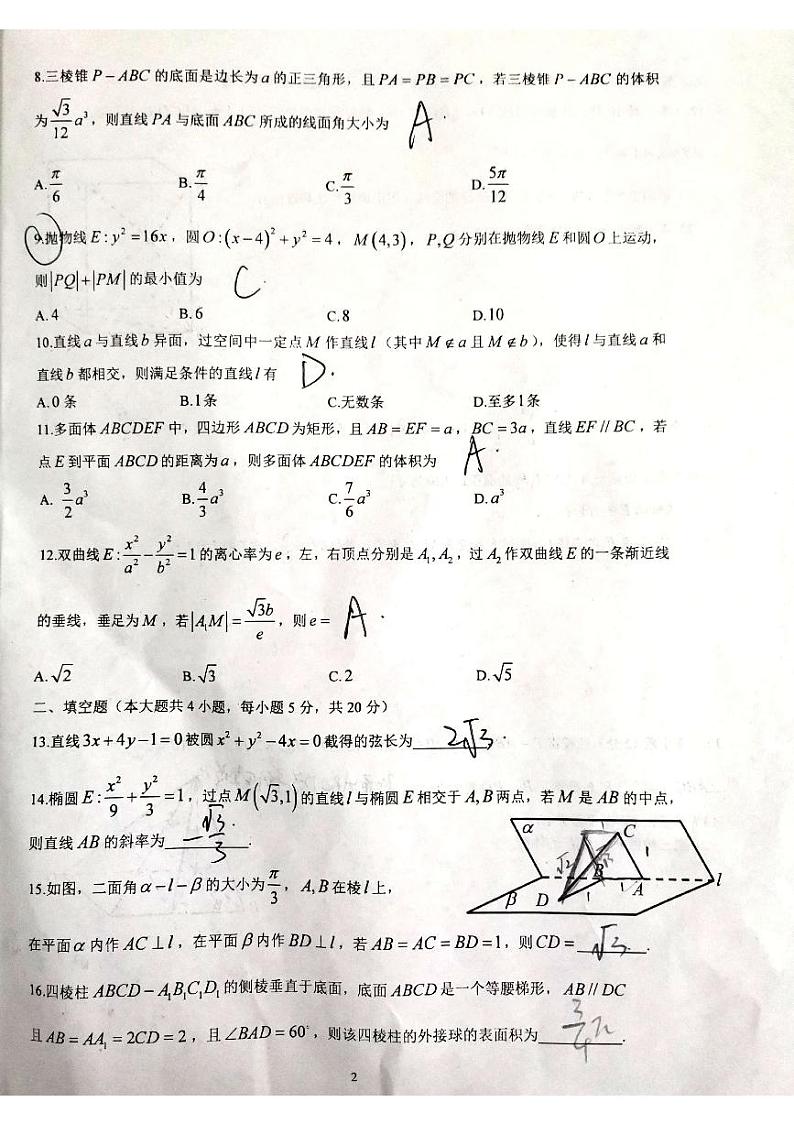 8.三棱锥 P－ABC 的底面是边长为 a 的正三角形，且 PA＝PB＝PC，若三棱锥 P－ABC 的体积
为 √3/12 a³，则直线 PA 与底面 ABC 所成的线面角大小为 A
A. π/6 B. π/4 C. π/3 D. 5π/12
9.抛物线 E:y²=16x，圆 O:(x-4)²+y²=4，M(4,3)，P,Q 分别在抛物线 E 和圆 O 上运动，
则|PQ|+|PM|的最小值为 C
A.4 B.6 C.8 D.10
10.直线 a 与直线 b 异面，过空间中一定点 M 作直线 l（其中 M∉a 且 M∉b），使得 l 与直线 a 和
直线 b 都相交，则满足条件的直线 l 有 D
A.0 条 B.1条 C.无数条 D.至多1条
11.多面体 ABCDEF 中，四边形 ABCD 为矩形，且 AB＝EF＝a，BC＝3a，直线 EF // BC，若
点 E 到平面 ABCD 的距离为 a，则多面体 ABCDEF 的体积为 A
A. 3/2 a³ B. 4/3 a³ C. 7/6 a³ D. a³
12.双曲线 E: x²/a² - y²/b² =1 的离心率为 e，左，右顶点分别是 A₁,A₂，过 A₂ 作双曲线 E 的一条渐近线
的垂线，垂足为 M，若|A₁M|= √3b/e，则 e＝ A
A.√2 B.√3 C.2 D.√5
二、填空题（本大题共 4 小题，每小题 5 分，共 20 分）
13.直线 3x+4y-1=0 被圆 x²+y²-4x=0 截得的弦长为 2√3 .
14.椭圆 E: x²/9 + y²/3 =1，过点 M(√3,1) 的直线 l 与椭圆 E 相交于 A,B 两点，若 M 是 AB 的中点，
则直线 AB 的斜率为 -√3/3 .
15.如图，二面角 α-l-β 的大小为 π/3，A,B 在棱 l 上，
在平面 α 内作 AC⊥l，在平面 β 内作 BD⊥l，若 AB＝AC＝BD＝1，则 CD＝ √3 .
α C B A l β D
1 √2 √3 1 1 1
16.四棱柱 ABCD－A₁B₁C₁D₁ 的侧棱垂直于底面，底面 ABCD 是一个等腰梯形，AB // DC
且 AB＝AA₁＝2CD＝2，且∠BAD＝60°，则该四棱柱的外接球的表面积为 3/4π .
2